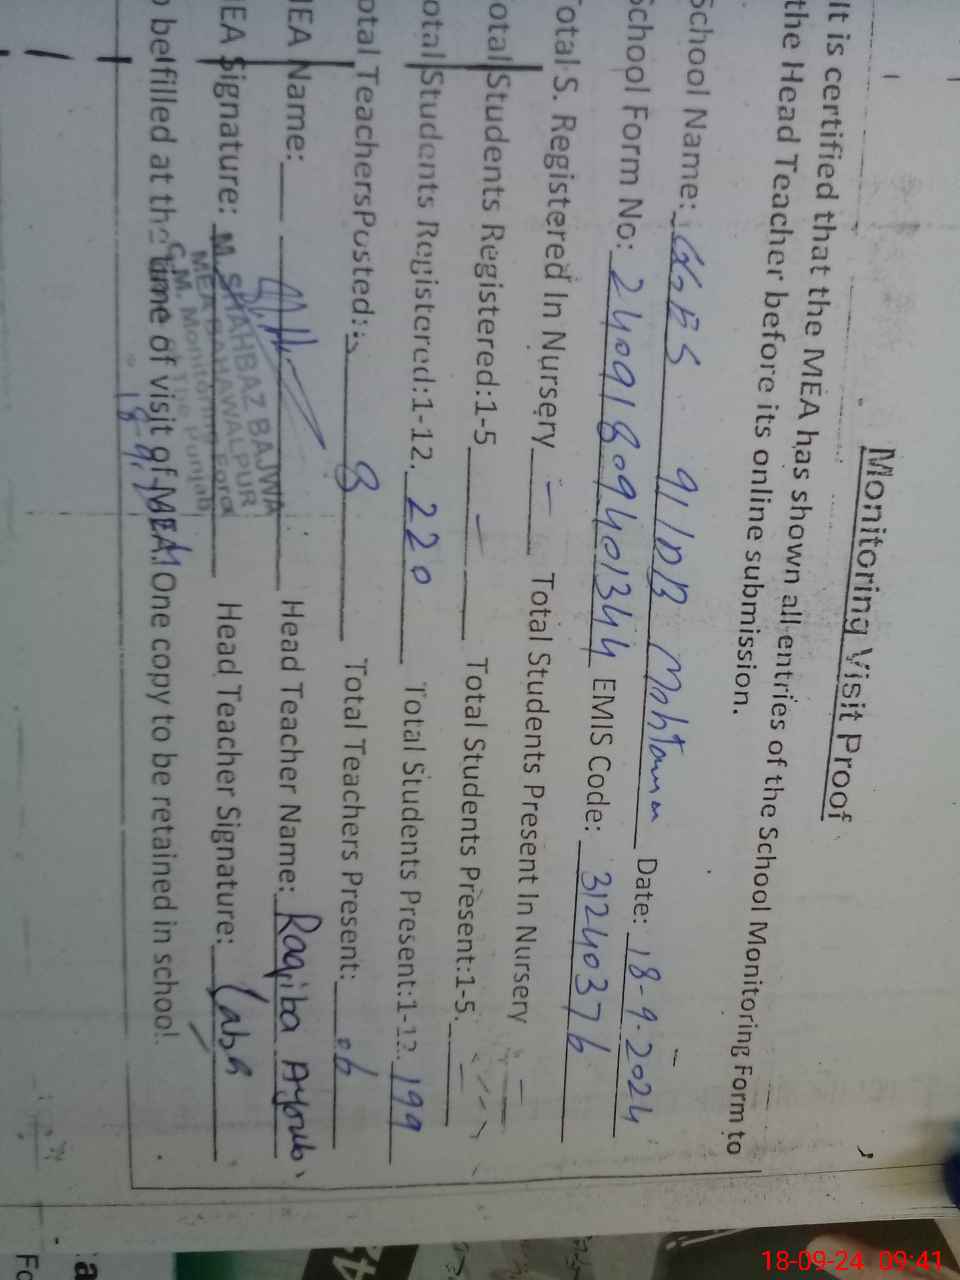 Monitoring Visit Proof
It is certified that the MEA has shown all entries of the School Monitoring Form to
the Head Teacher before its online submission.
School Name: GGES 91/DB Mohtamm Date: 18-9-2024
School Form No: 2409180940 1344 EMIS Code: 31240376
Total S. Registered In Nursery - Total Students Present In Nursery -
Total Students Registered:1-5 - Total Students Present:1-5. -
Total Students Registered:1-12. 220 Total Students Present:1-12. 199
Total TeachersPosted: 8 Total Teachers Present: 06
MEA Name: Head Teacher Name: Raqiba Ayoub
MEA Signature: Head Teacher Signature:
M. SHAHBAZ BAJWA
MEA BAHAWALPUR
C.M. Monitoring Force
The Punjab
18-9-
be filled at the time of visit of MEA. One copy to be retained in school
18-09-24 09:41